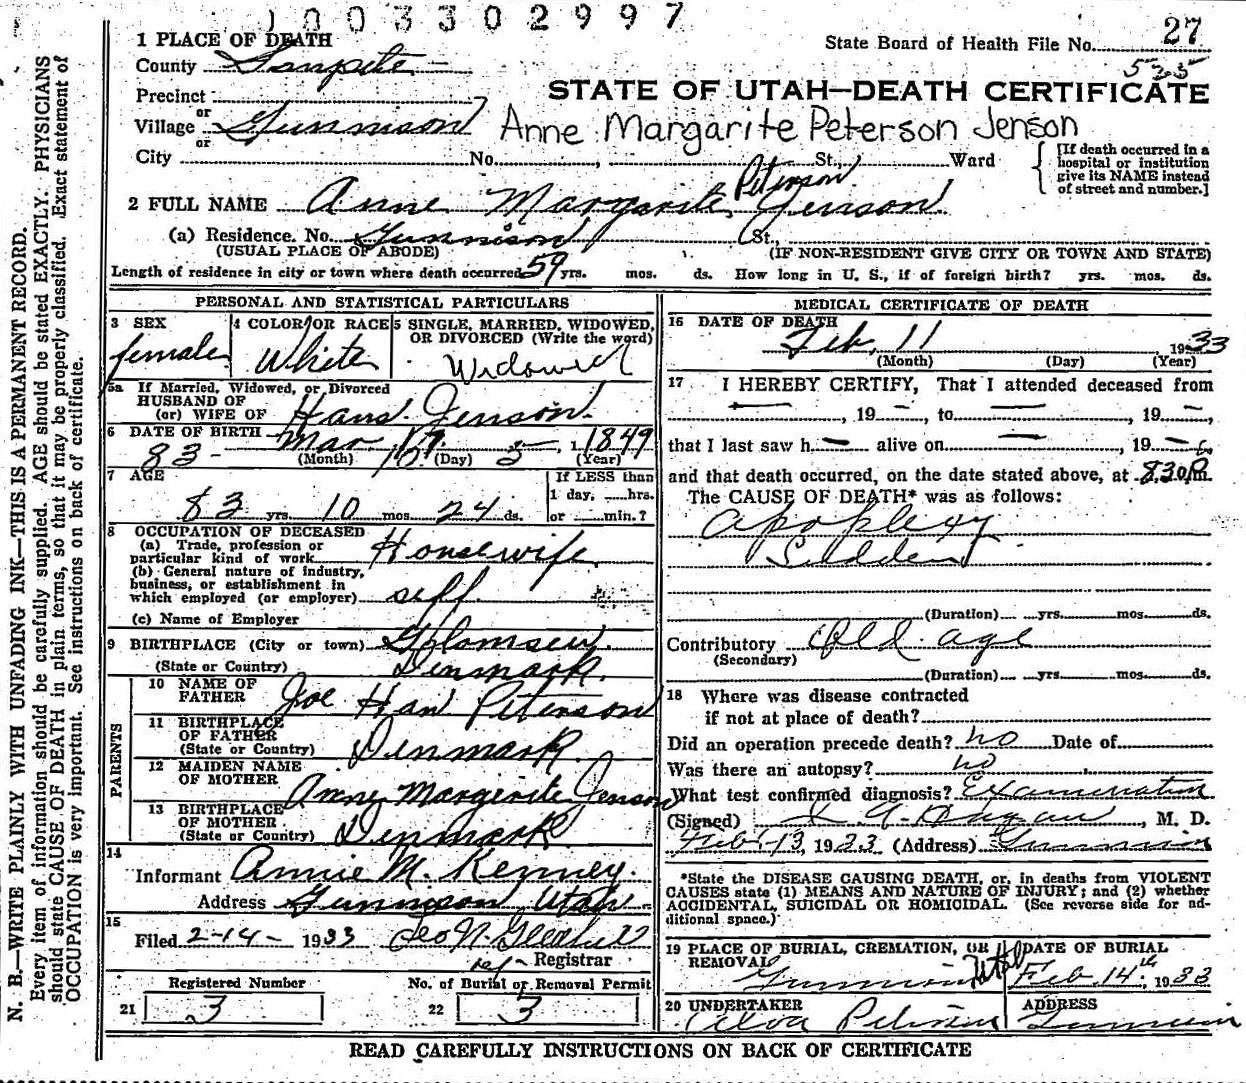 1003302997
1 PLACE OF DEATH
State Board of Health File No. 27
County Sanpete
535
Precinct
STATE OF UTAH—DEATH CERTIFICATE
or
Village Gunnison
Anne Margarite Peterson Jenson
or
City No. , St., Ward
[If death occurred in a hospital or institution give its NAME instead of street and number.]
Peterson
2 FULL NAME Anne Margarite Jenson
(a) Residence. No. Gunnison St.,
(USUAL PLACE OF ABODE) (IF NON-RESIDENT GIVE CITY OR TOWN AND STATE)
Length of residence in city or town where death occurred 59 yrs. mos. ds. How long in U. S., if of foreign birth? yrs. mos. ds.
PERSONAL AND STATISTICAL PARTICULARS
3 SEX
female
4 COLOR OR RACE
White
5 SINGLE, MARRIED, WIDOWED,
OR DIVORCED (Write the word)
Widowed
5a If Married, Widowed, or Divorced
HUSBAND OF
(or) WIFE OF Hans Jenson.
6 DATE OF BIRTH Mar 17 1849
83 - (Month) (Day) (Year)
7 AGE
83 yrs. 10 mos. 24 ds.
If LESS than
1 day, hrs.
or min.?
8 OCCUPATION OF DECEASED
(a) Trade, profession or
particular kind of work Housewife
(b) General nature of industry,
business, or establishment in
which employed (or employer) self
(c) Name of Employer
9 BIRTHPLACE (City or town)
(State or Country) Denmark.
PARENTS
10 NAME OF
FATHER Joe Han Peterson
11 BIRTHPLACE
OF FATHER
(State or Country) Denmark.
12 MAIDEN NAME
OF MOTHER Anne Margerite Jenson
13 BIRTHPLACE
OF MOTHER
(State or Country) Denmark
14
Informant Annie M. Kenney.
Address Gunnison Utah.
15
Filed 2-14- 1933 Leo N. Gledhill
Registrar
Registered Number No. of Burial or Removal Permit
21 3 22 3
MEDICAL CERTIFICATE OF DEATH
16 DATE OF DEATH
Feb, 11 1933
(Month) (Day) (Year)
17 I HEREBY CERTIFY, That I attended deceased from
— , 19 — , to — , 19 —,
that I last saw h — alive on — , 19 —
and that death occurred, on the date stated above, at 8.30 P.m.
The CAUSE OF DEATH* was as follows:
Apoplexy
Sudden
(Duration) yrs. mos. ds.
Contributory Old age
(Secondary)
(Duration) yrs. mos. ds.
18 Where was disease contracted
if not at place of death?
Did an operation precede death? no Date of
Was there an autopsy? no
What test confirmed diagnosis? Examination
(Signed) Hagan, M. D.
Feb 13, 1933 (Address) Gunnison
*State the DISEASE CAUSING DEATH, or, in deaths from VIOLENT
CAUSES state (1) MEANS AND NATURE OF INJURY; and (2) whether
ACCIDENTAL, SUICIDAL OR HOMICIDAL. (See reverse side for ad-
ditional space.)
19 PLACE OF BURIAL, CREMATION, OR
REMOVAL
Gunnison Utah
DATE OF BURIAL
Feb 14th, 1933
20 UNDERTAKER
Alva Peterson
ADDRESS
Gunnison
READ CAREFULLY INSTRUCTIONS ON BACK OF CERTIFICATE
N. B.—WRITE PLAINLY WITH UNFADING INK—THIS IS A PERMANENT RECORD.
Every item of information should be carefully supplied. AGE should be stated EXACTLY. PHYSICIANS
should state CAUSE OF DEATH in plain terms, so that it may be properly classified. Exact statement of
OCCUPATION is very important. See instructions on back of certificate.